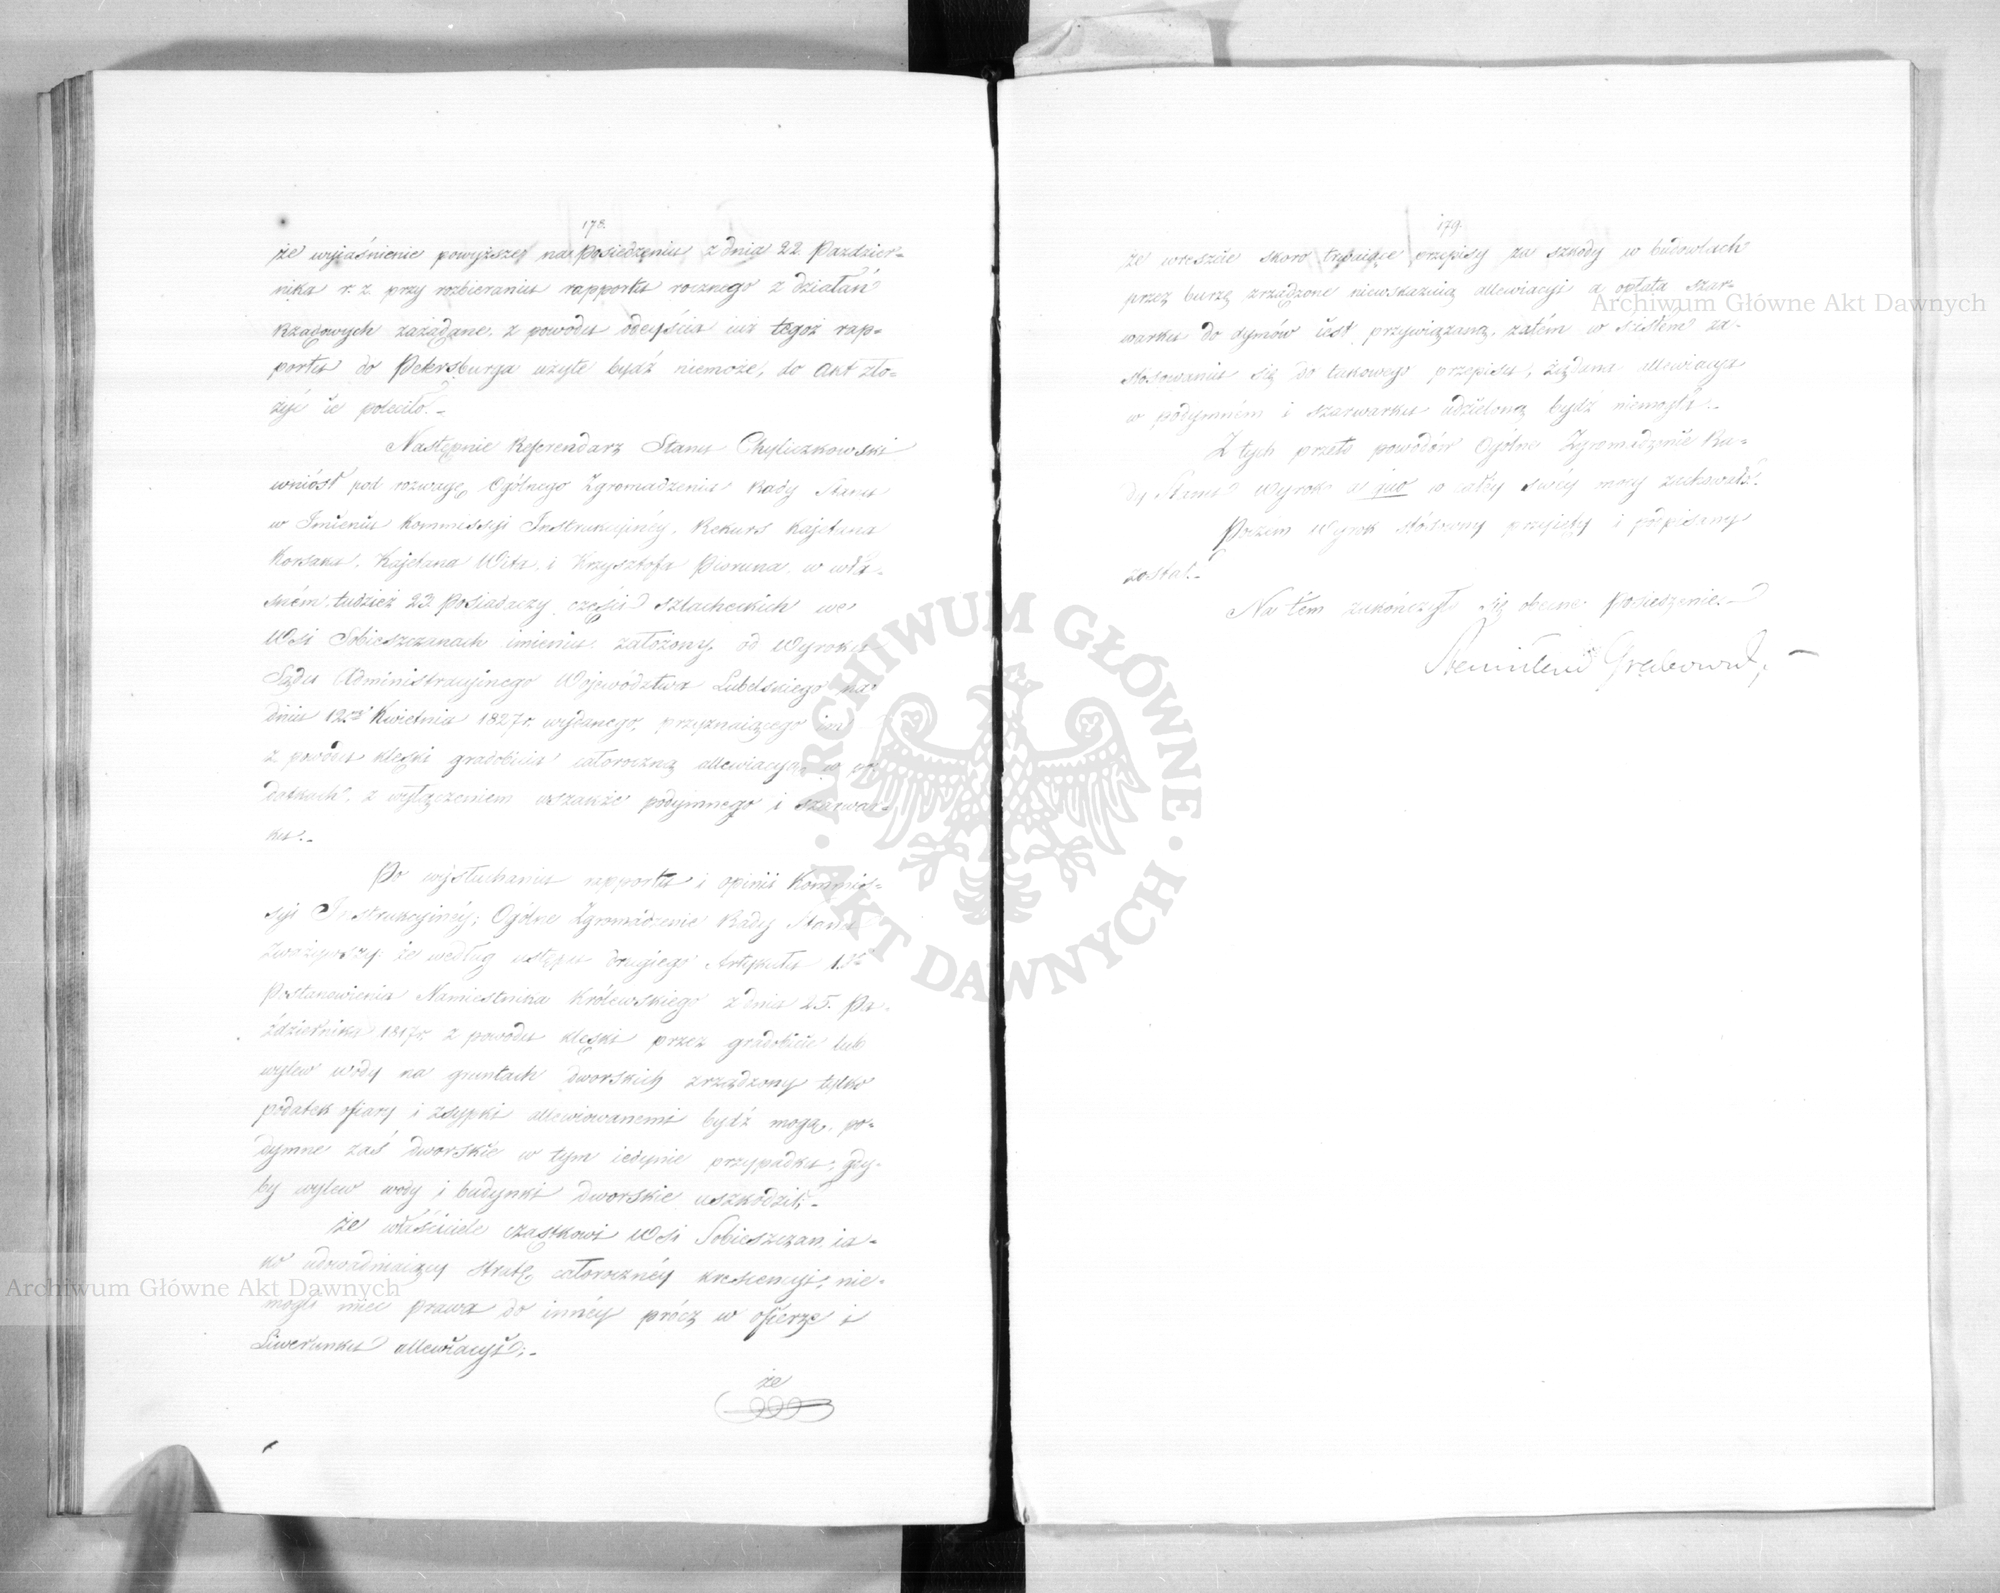 178.
że wyjaśnienie powyższe na Posiedzeniu z dnia 22 Paździer-
nika r. z. przy rozbieraniu rapportu rocznego z działań
Rządowych zażądane, z powodu odejścia iuż tegoż rap-
portu do Petersburga użyte bydź niemoże, do Akt zło-
żyć ie poleciło.-
Następnie Referendarz Stanu Chyliczkowski
wniósł pod rozwagę Ogólnego Zgromadzenia Rady Stanu
w Imieniu Kommissyi Instrukcyjnéy, Rekurs Kajetana
Korsaka, Kajetana Wita, i Krzysztofa Pioruna, w wła-
sném, tudzież 23 Posiadaczy części szlacheckich we
Wsi Sobieszczanach imieniu, założony od Wyroku
Sądu Administracyjnego Województwa Lubelskiego na
dniu 12 Kwietnia 1827 r. wydanego, przyznaiącego im
z powodu klęski gradobicia całoroczną allewiacyą w po-
datkach, z wyłączeniem wszakże podymnego i szarwar-
ku.-
Po wysłuchaniu rapportu i opinii Kommis-
syi Instrukcyjnéy, Ogólne Zgromadzenie Rady Stanu
Zważywszy: że według ustępu drugiego Artykułu
Postanowienia Namiestnika Królewskiego z dnia 25. Pa-
ździernika 1817 r. z powodu klęski przez gradobicie lub
wylew wody na gruntach dworskich zrządzony tylko
podatek ofiary i zsypki allewiowanemi bydź mogą, po-
dymne zaś dworskie w tym iedynie przypadku, gdy-
by wylew wody i budynki dworskie uszkodził;-
że właściciele cząstkowi Wsi Sobieszczan, ia-
ko udowadniaiący stratę całorocznéy krescencyi, nie-
mogli mieć prawa do innéy prócz w ofierze i
Liwerunku allewiacyi;-
że
179.
że wreszcie skoro trwaiące przepisy za szkody w budowlach
przez burzę zrządzone niewskazuią allewiacyi a opłata szar-
warku do dymów iest przywiązaną, zatém w ścisłém za-
stosowaniu się do takowego przepisu, żądana allewiacya
w podymném i szarwarku udzieloną bydź niemogła.-
Z tych przeto powodów Ogólne Zgromadzenie Ra-
dy Stanu Wyrok a quo w całéy swéy mocy zachowało.
Poczém Wyrok stósowny przyjęty i podpisany
został.-
Na tém zakończyło się obecne Posiedzenie.-
Grabowski
Archiwum Główne Akt Dawnych
Archiwum Główne Akt Dawnych
ARCHIWUM GŁÓWNE
AKT DAWNYCH